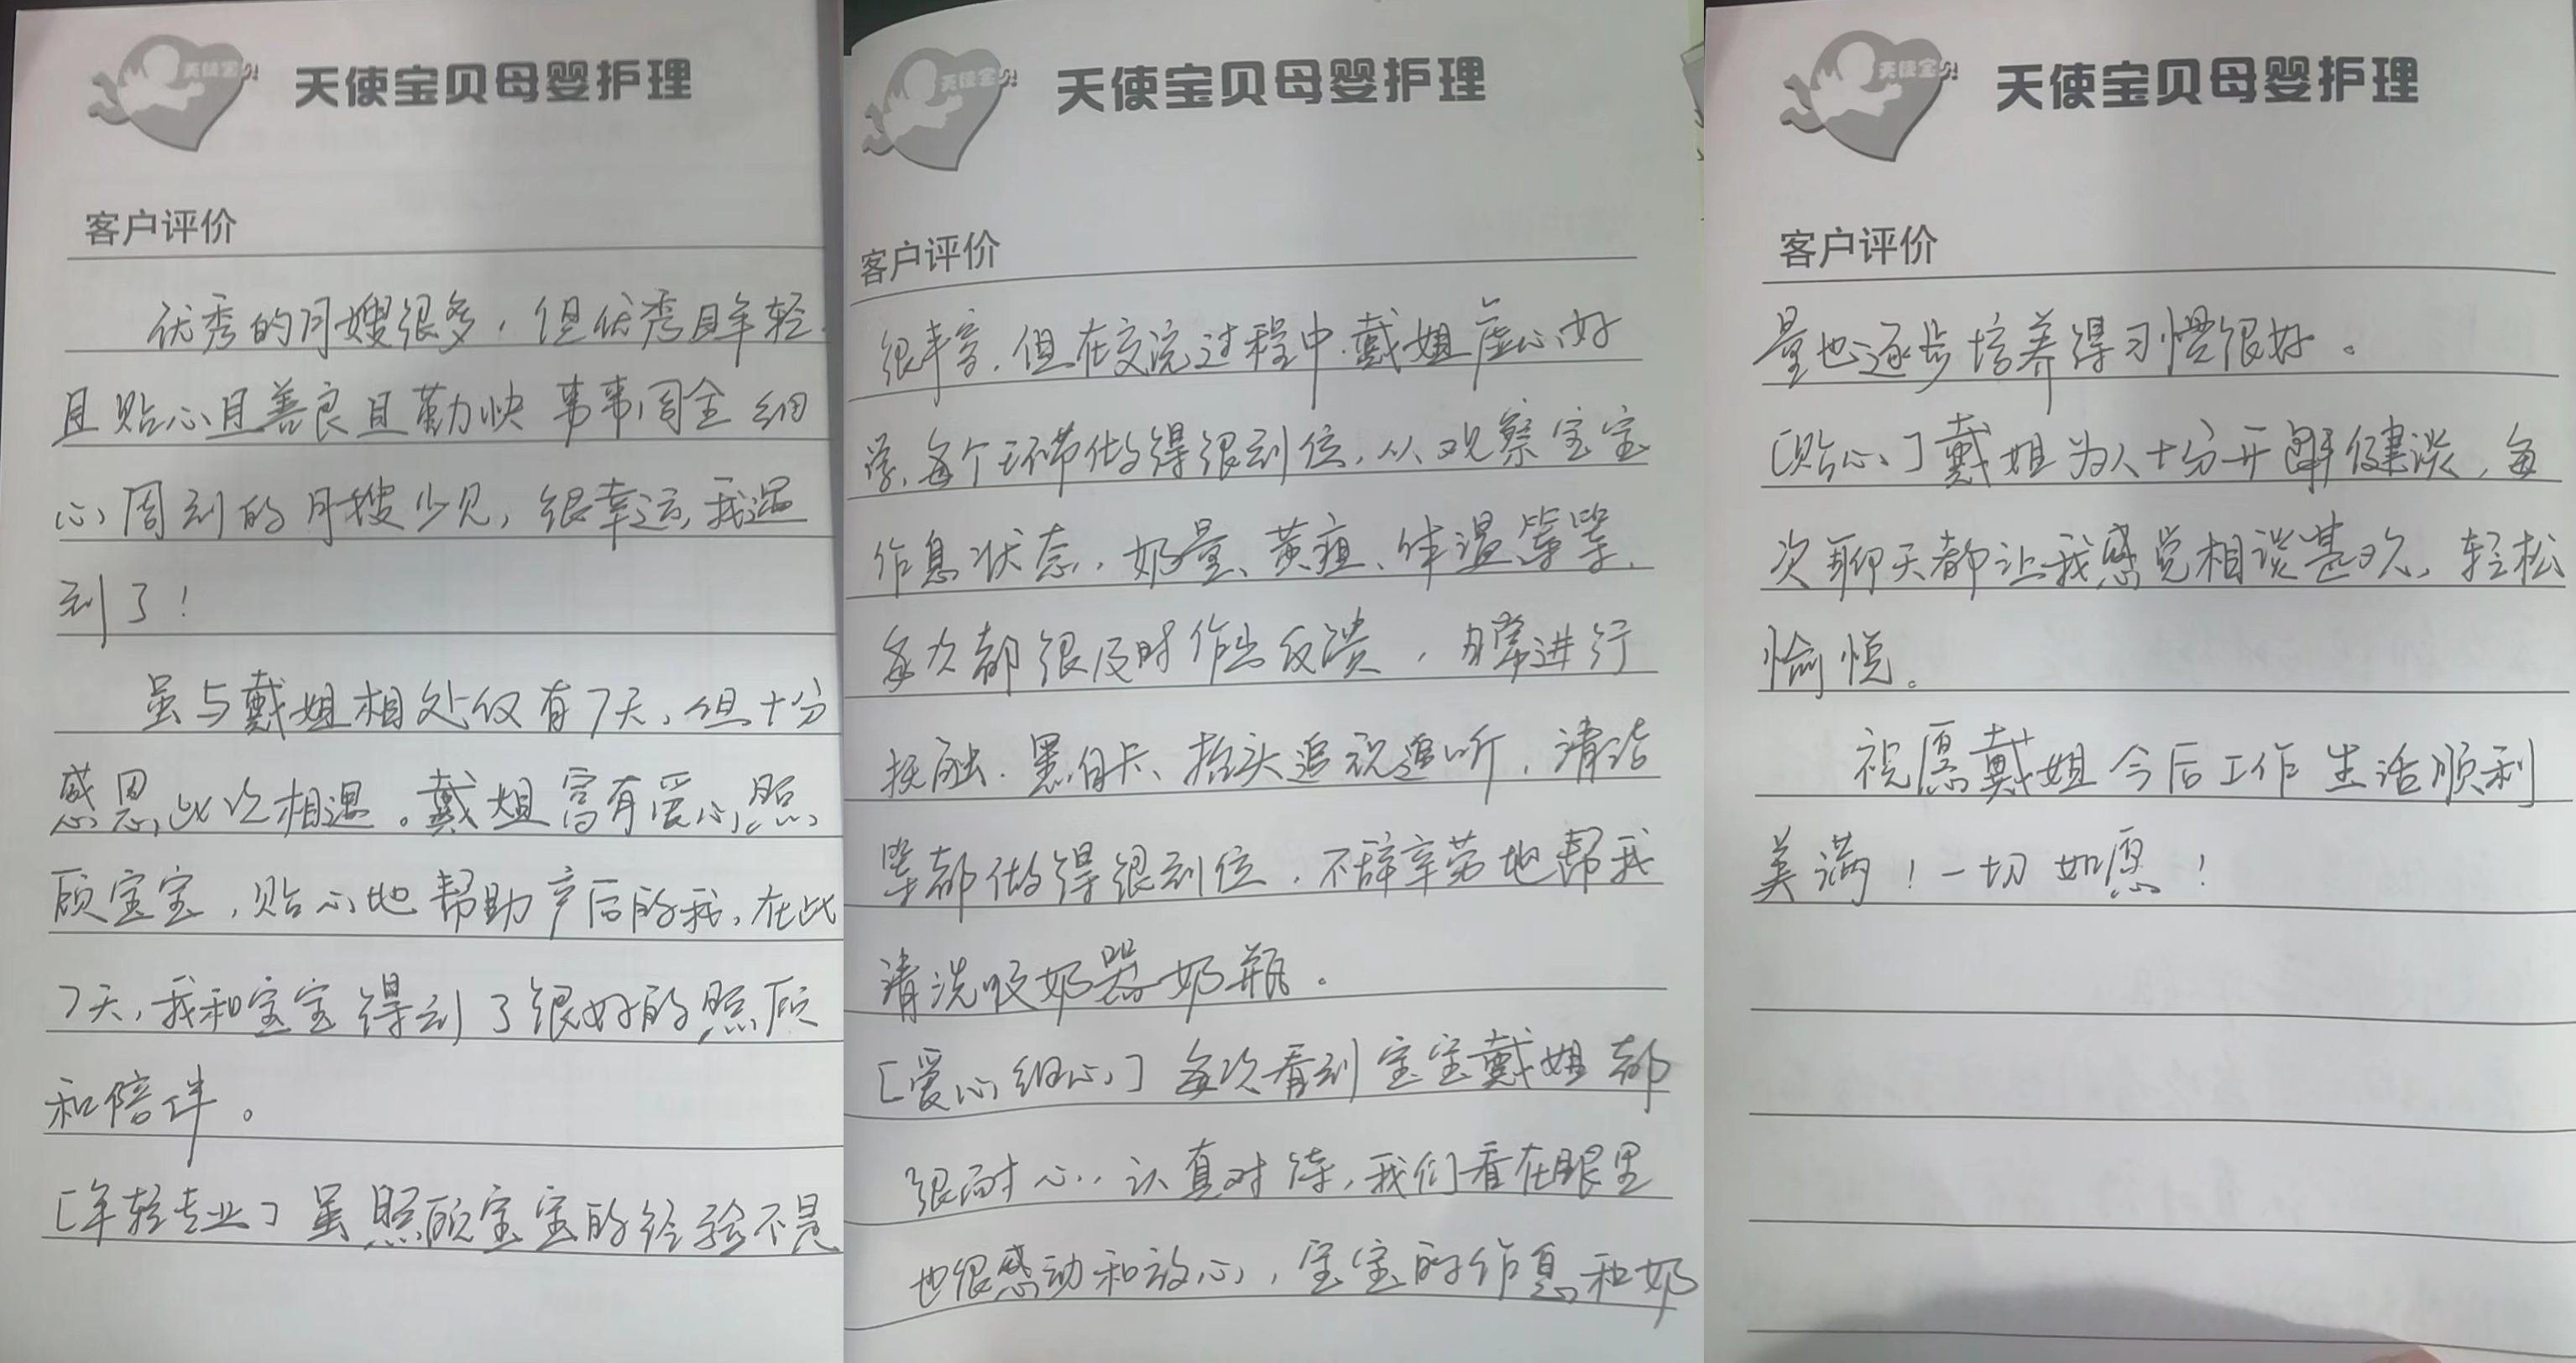 天使宝贝
天使宝贝母婴护理
客户评价
优秀的月嫂很多，但优秀且年轻
且贴心且善良且勤快 事事周全 细
心周到的月嫂少见，很幸运，我遇
到了！
虽与戴姐相处仅有7天，但十分
感恩此次相遇。戴姐富有爱心，照
顾宝宝，贴心地帮助产后的我，在此
7天，我和宝宝得到了很好的照顾
和陪伴。
[年轻专业] 虽照顾宝宝的经验不是
天使宝贝
天使宝贝母婴护理
客户评价
很丰富，但在交流过程中，戴姐虚心好
学，每个环节做得很到位，从观察宝宝
作息状态，奶量、黄疸、体温等等，
每次都很及时作出反馈，日常进行
抚触、黑白卡、抬头追视追听，清洁
等都做得很到位，不辞辛劳地帮我
清洗吸奶器奶瓶。
[爱心细心] 每次看到宝宝戴姐都
很耐心，认真对待，我们看在眼里
也很感动和放心，宝宝的作息和奶
天使宝贝
天使宝贝母婴护理
客户评价
量也逐步培养得习惯很好。
[贴心] 戴姐为人十分开朗健谈，每
次聊天都让我感觉相谈甚欢，轻松
愉悦。
祝愿戴姐今后工作 生活顺利
美满！一切如愿！